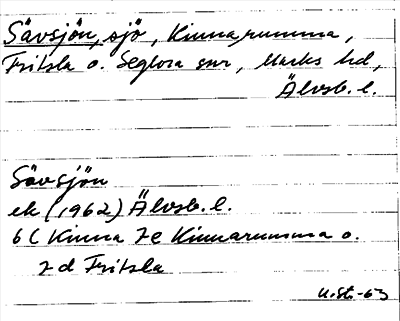 Sävsjön, sjö, Kinnarumma,
Fritsla o. Seglora snr, Marks hd,
Älvsb. l.
Sävsjön
ek (1962) Älvsb. l.
6C Kinna 7e Kinnarumma o.
7d Fritsla
U.St.-63